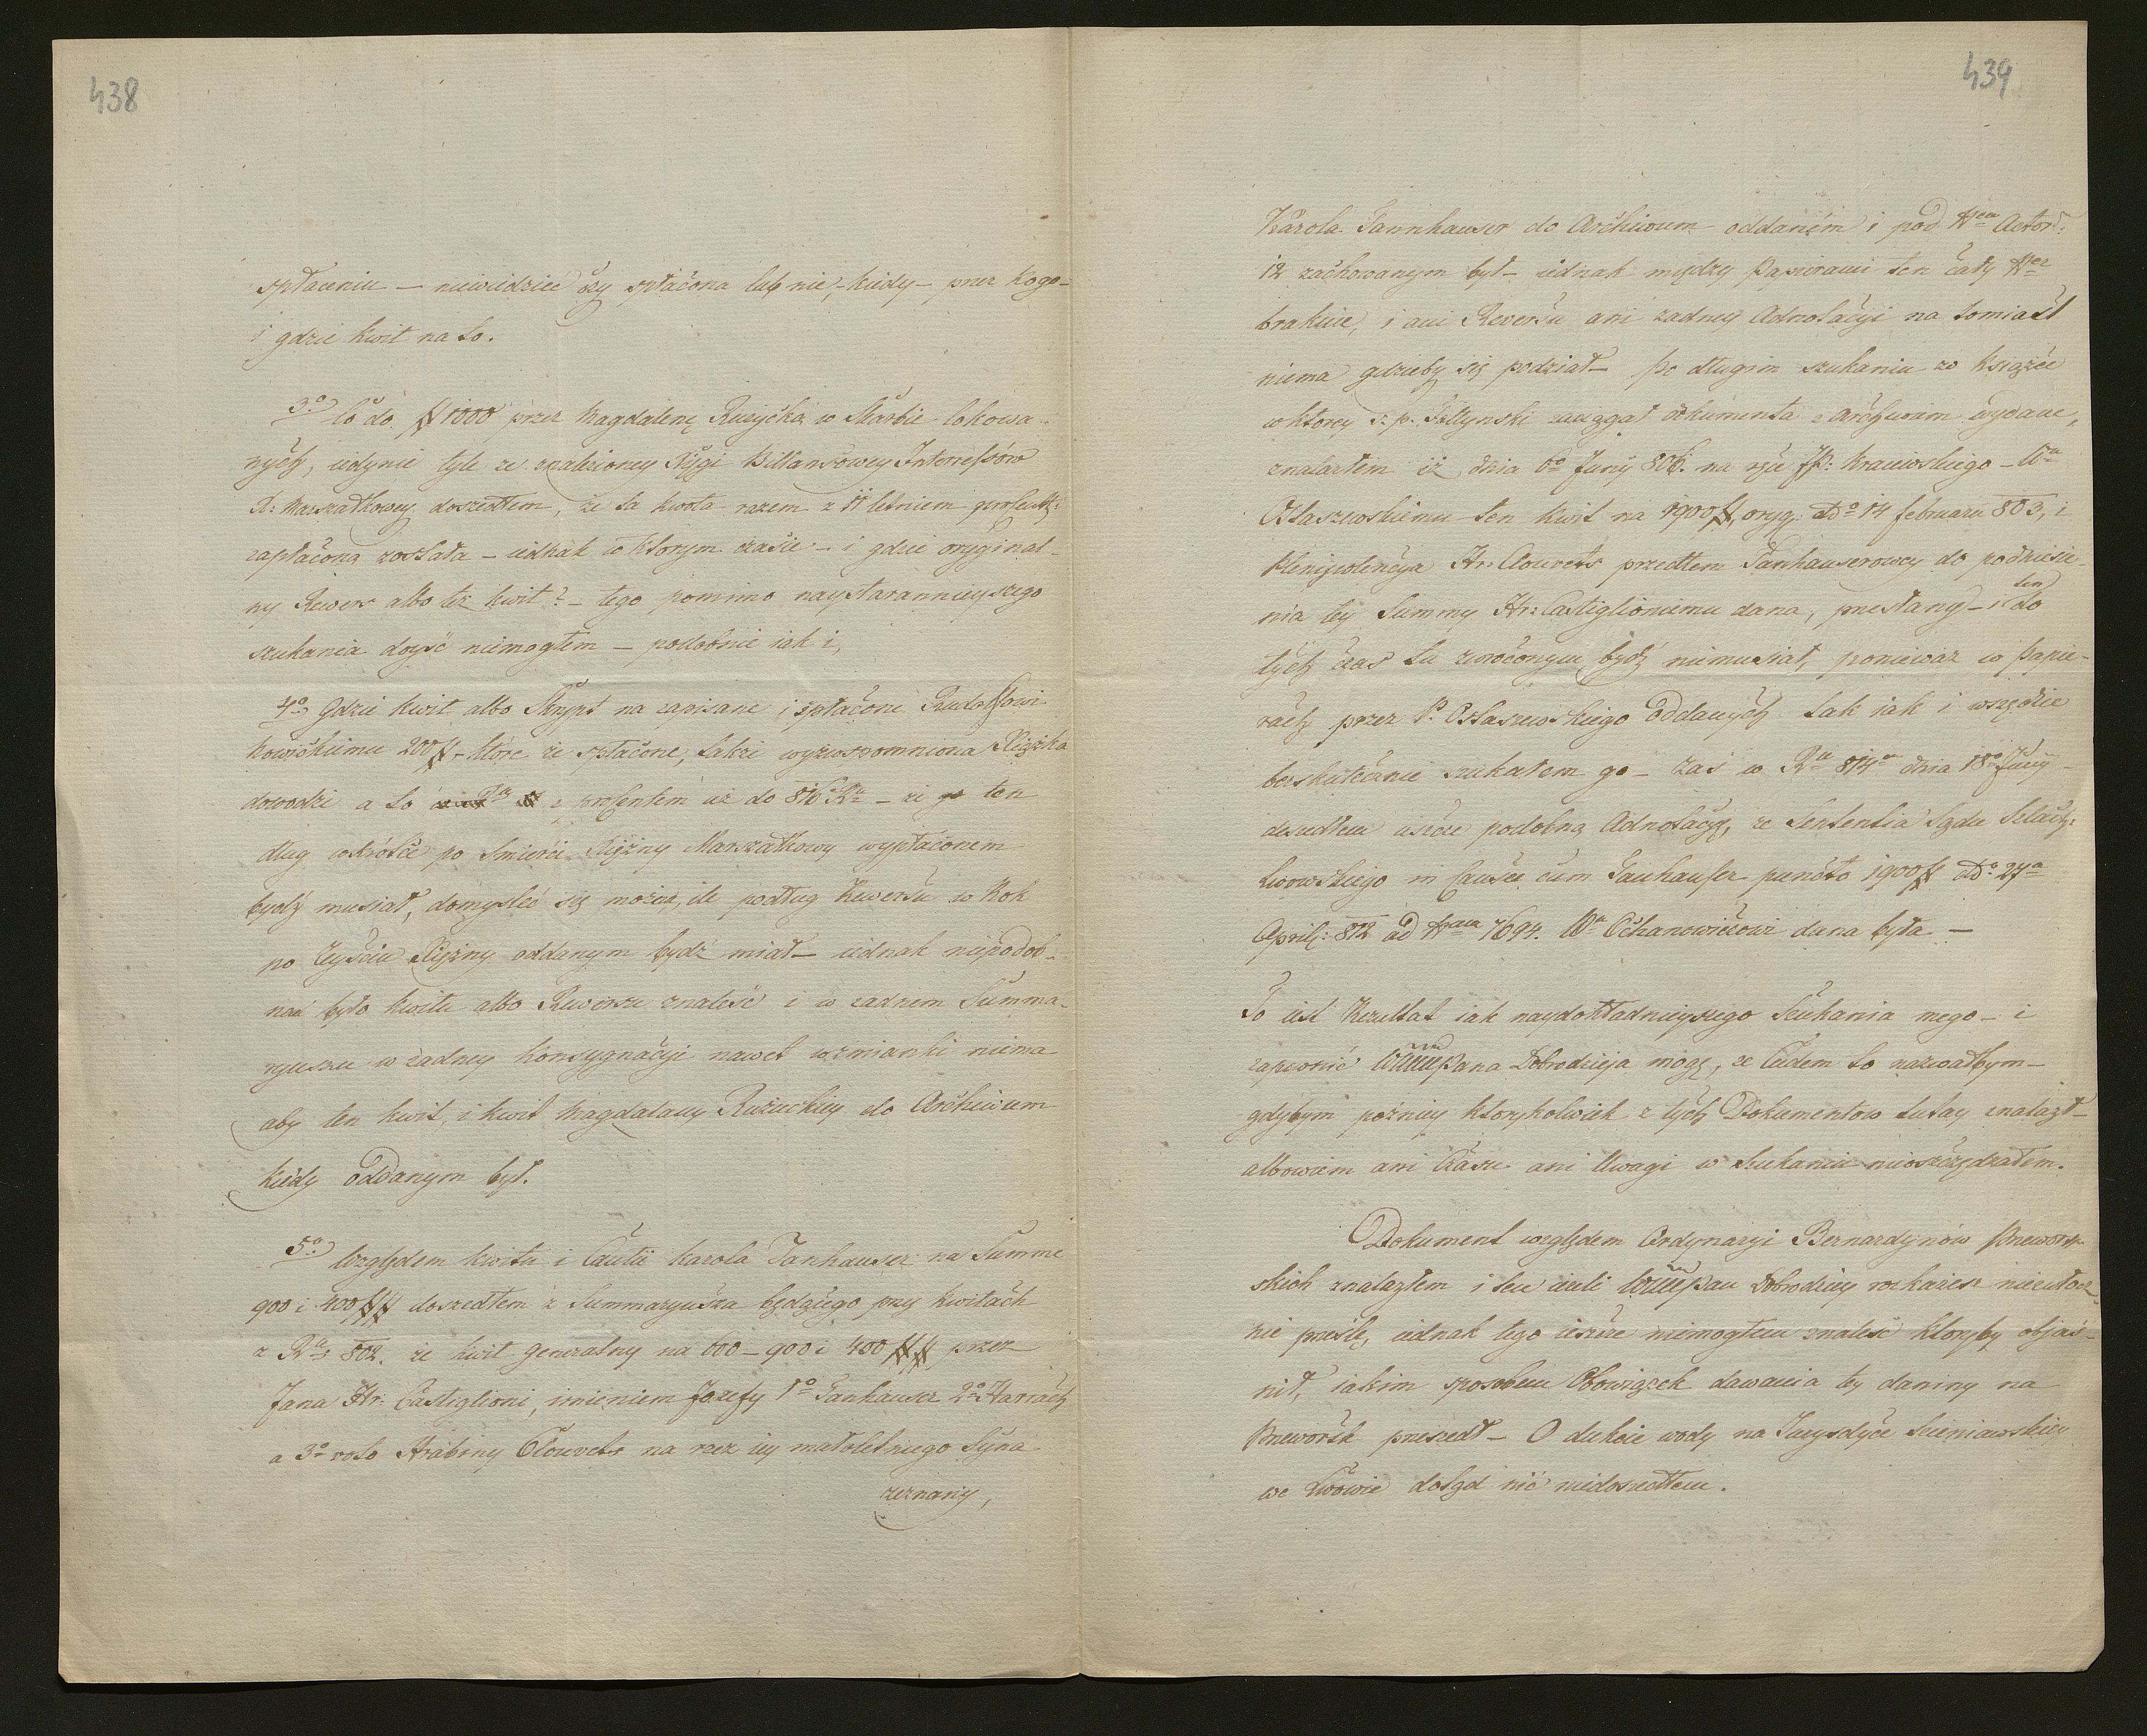 438
spłaceniu — niewiedzieć czy spłacona lub nie, – kiedy – przez kogo –
i gdzie kwit na to.
3o Co do # 1000 przez Magdalenę Ruzycką w Skarbie lokowa-
nych, jedynie tyle ze znalezioney Xięgi Billansowey Interessów
X: Marszałkowey doszedłem, że ta kwota razem z 11 letniem
zapłaconą została – iednak w ktorym czasie – i gdzie oryginal-
ny Rewers albo też kwit? – tego pomimo naystarannieyszego
szukania doyść niemogłem – podobnie iak i,
4o Gdzie kwit albo Skrypt na zapisane i spłacone Rudolfowi
200 #, – które że spłacone, także wyżwspomniona Xiążka
dowodzi a to z prosentem aż do 816 Ru – że ten
dług wkrótce po Smierci Xiężny Marszałkowy wypłaconem
bydź musiał, domyslić się można, ile podług Rewersu w Rok
po Zyściu Xiężny oddanym bydź miał – iednak niepodob-
na było kwitu albo Rewersu znaleść i w żadnem Summa-
ryuszu w żadney konsygnacyi nawet wzmianki niema
aby ten kwit, i kwit Magdaleny Ruzuckiey do Archiwum
kiedy oddanym był.
5o Względem kwitu i Cautii Karola Tanhauser na Summe
900 i 400 ## doszedłem z Summaryusza będącego przy kwitach
z Ru 802. że kwit generalny na 600 – 900 i 400 ## przez
Jana Hr: Castiglioni, imieniem Jozefy 1o Tanhauser 2o Harrach
a 3o voto Hrabiny Clouvets na rzez iey małoletniego Syna
zeznany,
439
Karola Tannhauser do Archiwum oddanem i pod Nro Actor:
12 zachowanym był – iednak między Papierami ten cały Ner
brakuie, i ani Reversu ani zadney Adnotacyi na tomiast
niema gdzieby się podział – Po długim szukaniu w Książce
w ktorey ś: p. zaciągał dokumenta z Archiwum wydane,
znalazłem iż dnia 6o Juny 806. na ręce JP: Kraiewskiego – Wu
Ostaszewskiemu ten kwit na 1900 #, oryg: ddo 14 februarii 803, i
Plenipotencya Hr: Clouvets przedtem Tanhauserowey do podniesie-
nia tey Summy Hr: Castiglioniemu dana, przesłany – i ten do
tych czas tu zwróconym bydź niemusiał, ponieważ w Papie-
rach przez P. Ostaszewskiego oddanych tak iak i wszędzie
bezskutecznie szukałem go – zaś w Ru 814 dnia 18o Juny
doszedłem ieszcze podobną Adnotacyę, że Sententia Sądu Szlach:
Lwowskiego in Causa cum Tanhauser puncto 1900 # ddo 27a
April: 812 ad Nrum 7694. Wu Ochanowiczowi dana była —
To iest Rezultat iak naydokładnieyszego Szukania mego – i
zapewnić WJmPana Dobrodzieja mogę, że Cudem to nazwałbym –
gdybym poźniey ktorykolwiek z tych Dokumentow tutay znalazł –
albowiem ani Czasu ani Uwagi w Szukaniu nieoszczędzałem.
Dokument względem Ordynaryi Bernardynów Przewor-
skich znalazłem i ten ieżeli WJmPan Dobrodziey rozkażesz
prześlę, iednak tego ieszcze niemogłem znaleść ktoryby objaś-
nił, iakim sposobem Obowiązek dawania tey daniny na
Przeworsk przeszedł – O dukcie wody na Jurysdyce Sieniawskiey
we Lwowie dotąd nic niedoszedłem.